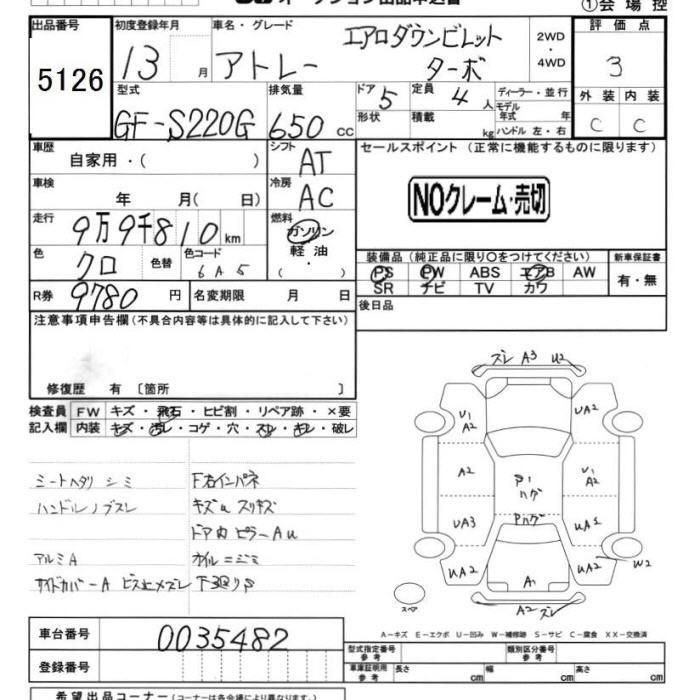 ①会場控
出品番号
5126
初度登録年月
13 月
車名・グレード
アトレー
エアロダウンビレット
ターボ
2WD
・
4WD
評価点
3
型式
GF-S220G
排気量
650 cc
ドア 5
形状
定員 4 人
積載 kg
ディーラー・並行
モデル
年式 年
ハンドル 左・右
外装 内装
C C
車歴
自家用・( )
シフト
AT
セールスポイント (正常に機能するものに限ります)
NOクレーム・売切
車検
年 月( 日)
冷房
AC
走行
9万9千810 km
燃料
ガソリン
軽油
・
色
クロ
色替
色コード
6A5
装備品 (純正品に限り○をつけてください)
PS PW ABS エアB AW
SR ナビ TV カワ
新車保証書
有・無
R券
9780 円
名変期限 月 日
後日品
注意事項申告欄(不具合内容等は具体的に記入して下さい)
修復歴 有 〔箇所 〕
検査員
記入欄
FW キズ・飛石・ヒビ割・リペア跡・×要
内装 キズ・汚レ・コゲ・穴・スレ・キレ・破レ
ミートヘタリ シミ
ハンドル ノブスレ
アルミA
サイドカバーA ビス止メズレ
F右インパネ
キズu スリキズ
ドア内 ピラーAu
オイルニジミ
下回りS
ズレ A3 U2
U1
A2
UA2
A2
P1
ハゲ
U1
A2
UA3
Pハゲ
UA2
A1
UA2
W2
スペア
A2 ズレ
A-キズ E-エクボ U-凹み W-補修跡 S-サビ C-腐食 XX-交換済
車台番号
0035482
登録番号
型式指定番号
参考
類別区分番号
参考
車庫証明用
参考
長さ cm
幅 cm
高さ cm
希望出品コーナー (コーナーは各会場により異なります)